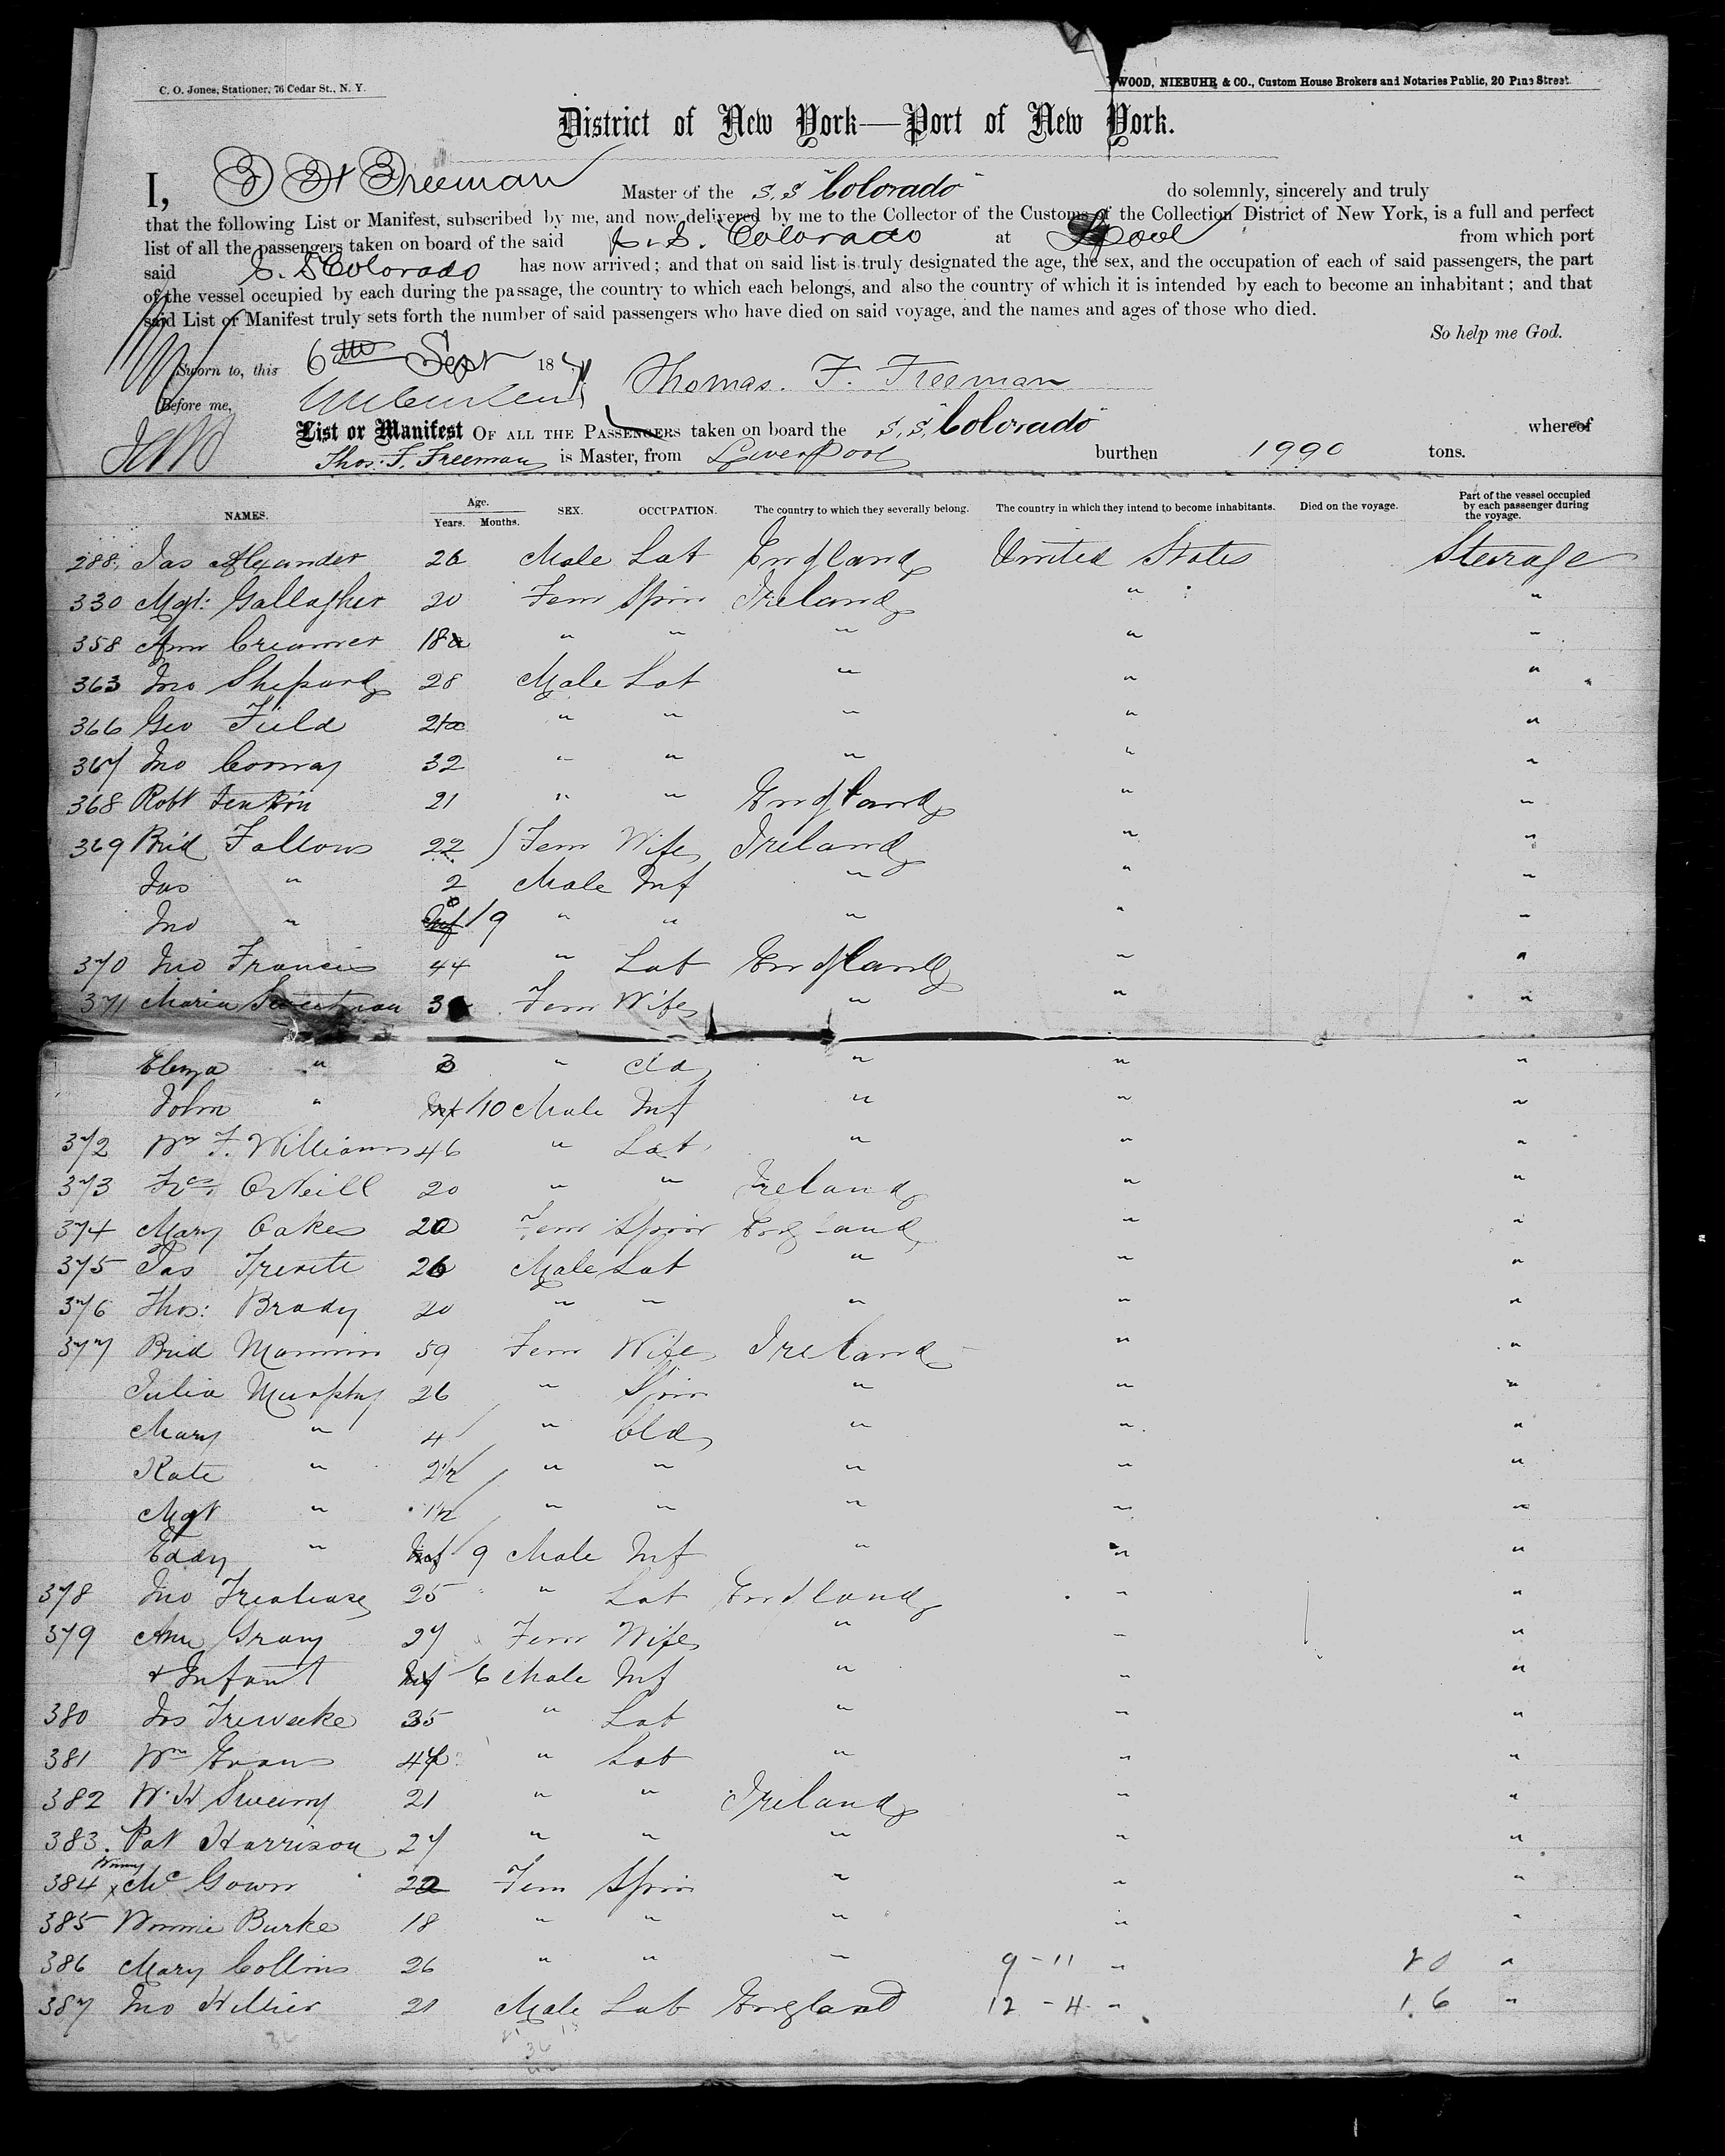 C. O. Jones, Stationer, 76 Cedar St., N. Y.
WOOD, NIEBUHR & CO., Custom House Brokers and Notaries Public, 20 Pine Street.
District of New York—Port of New York.
I, Freeman Master of the S. S "Colorado" do solemnly, sincerely and truly
that the following List or Manifest, subscribed by me, and now delivered by me to the Collector of the Customs of the Collection District of New York, is a full and perfect
list of all the passengers taken on board of the said S. S. Colorado at Lpool from which port
said S. S Colorado has now arrived; and that on said list is truly designated the age, the sex, and the occupation of each of said passengers, the part
of the vessel occupied by each during the passage, the country to which each belongs, and also the country of which it is intended by each to become an inhabitant; and that
said List or Manifest truly sets forth the number of said passengers who have died on said voyage, and the names and ages of those who died.
So help me God.
Sworn to, this 6th Sept 18
Thomas. F. Freeman
Before me,
List or Manifest OF ALL THE PASSENGERS taken on board the S. S. "Colorado" whereof
Thos. F. Freeman is Master, from Liverpool burthen 1990 tons.
NAMES. Age. Years. Months. SEX. OCCUPATION. The country to which they severally belong. The country in which they intend to become inhabitants. Died on the voyage. Part of the vessel occupied by each passenger during the voyage.
288. Jas Alexander 26 Male Lab England United States Steerage
330 Mgt: Gallagher 20 Fem Spin Ireland " "
358 Ann Creamer 18 " " " " "
363 Jno Shepard 28 Male Lab " " "
366 Geo Field " " " " "
367 Jno Conway 32 " " " " "
368 Robt Jenkin 21 " " England " "
369 Brid Fallows 22 Fem Wife Ireland " "
Jas " 2 Male Inf " " "
Jno " 9 " " " " "
370 Jno Francis 44 " Lab England " "
371 Maria Sweetman Fem Wife " " "
Eliza " 3 " Cld " " "
John " Inf 10 Male Inf " " "
372 Wm F. Williams 46 " Lab " " "
373 Frcs. ONeill 20 " " Ireland " "
374 Mary Oakes 20 Fem Spin England " "
375 Jas 26 Male Lab " " "
376 Thos: Brady 20 " " " " "
377 Brid Mannin 59 Fem Wife Ireland " "
Julia Murphy 26 " Spin " " "
Mary " 4 " Cld " " "
Kate " 2 1/2 " " " " "
Mgt " 1 1/2 " " " " "
Eddy " Inf 9 Male Inf " " "
378 Jno 25 " Lab England " "
379 Ann Gray 27 Fem Wife " " "
& Infant Inf 6 Male Inf " " "
380 Jos Treweeke 35 " Lab " " "
381 Wm Evans " Lab " " "
382 W. H Sweeny 21 " " Ireland " "
383. Pat Harrison 27 " " " " "
Winny
384 x Mc Gown 22 Fem Spin " " "
385 Winnie Burke 18 " " " " "
386 Mary Collins 26 " " " 9 - 11 " 20 "
387 Jno Hillier 21 Male Lab England 12 - 4 " 16 "
36